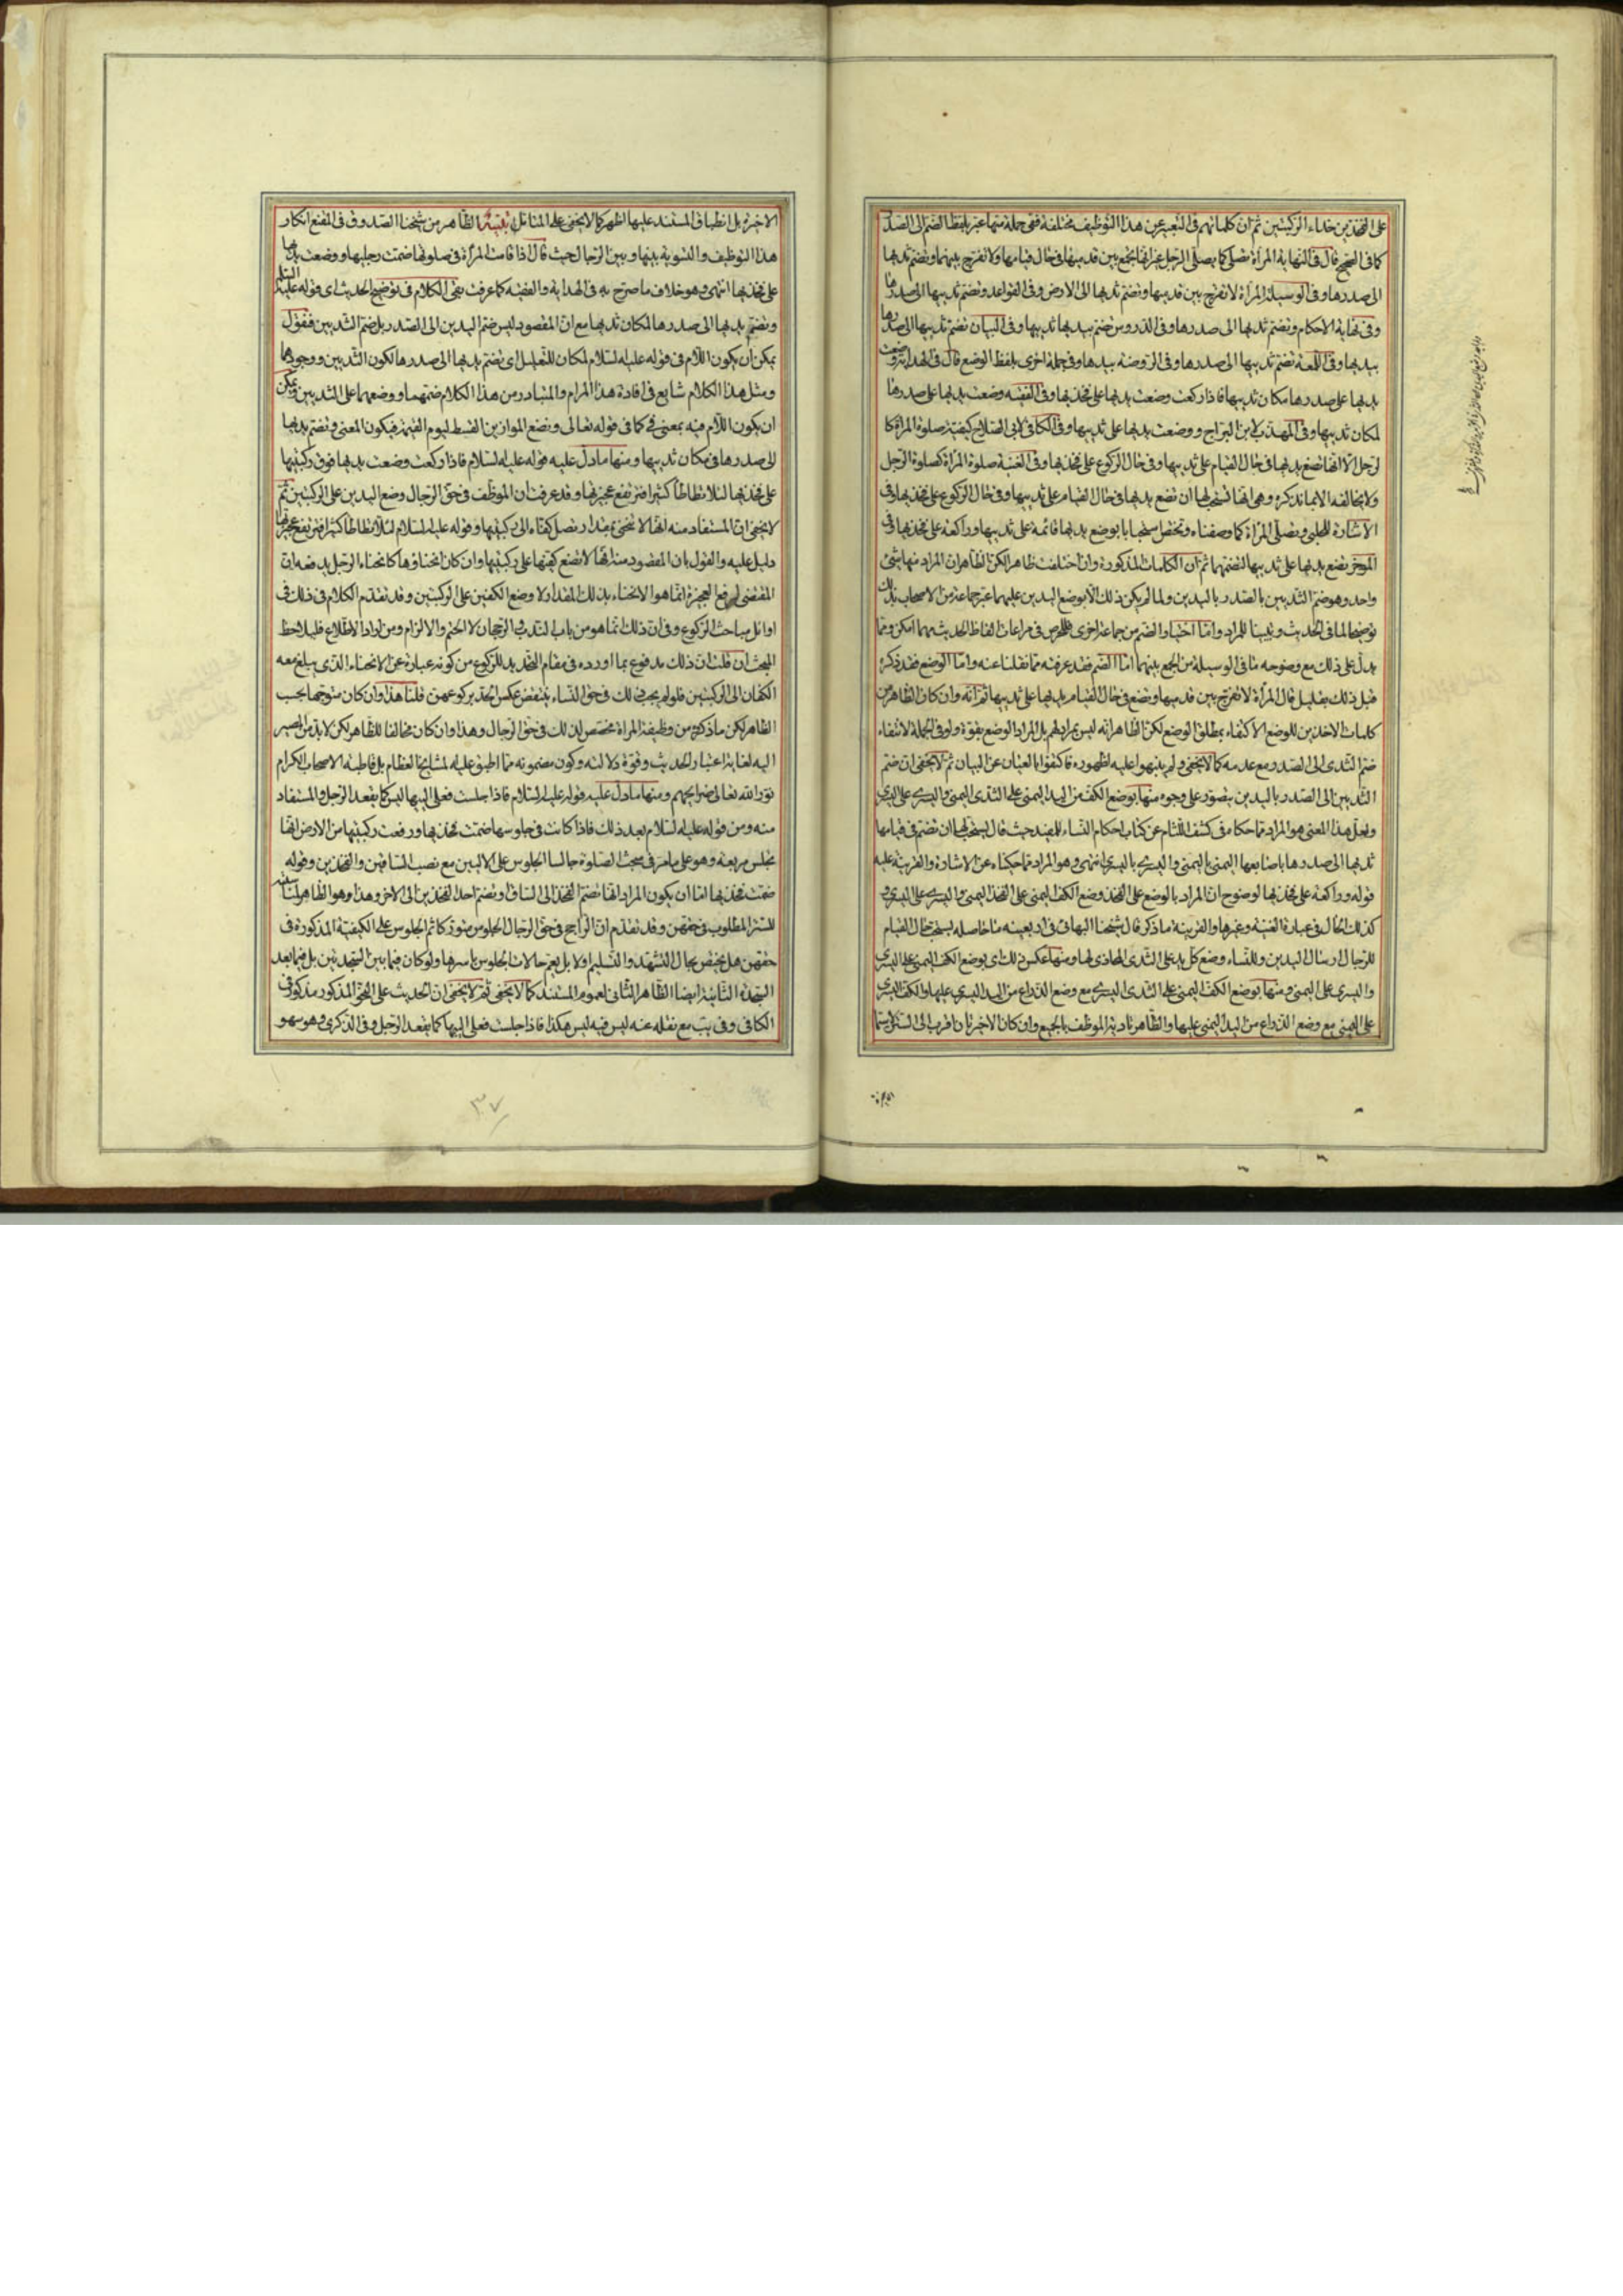 على الفخذين حذاء الركبتين ثم ان كلماتهم فى التعبير عن هذا التوظيف مختلفة ففى جملة منها عبر بلفظ الضم الى الصدر
كما فى الصحيح قال فى النهاية المرأة تصلى كما يصلى الرجل غير انها تجمع بين قدميها فى حال قيامها ولا تفرج بينهما وتضم ثدييها
الى صدرها وفى الوسيلة المرأة لا تفرج بين قدميها وتضم ثدييها الى الارض وفى القواعد وتضم ثدييها الى صدرها
وفى نهاية الاحكام وتضم ثدييها الى صدرها وفى الدروس تضم بيديها ثدييها وفى البيان تضم ثدييها الى صدرها
بيديها وفى اللمعة تضم ثدييها الى صدرها وفى الروضة بيدها وفى جملة اخرى بلفظ الوضع قال فى الهداية ووضعت
يديها على صدرها مكان ثدييها فاذا ركعت وضعت يديها على فخذيها وفى الفقيه وضعت يديها على صدرها
لمكان ثدييها وفى المهذب لابن البراج ووضعت يديها على ثدييها وفى الكافى لابى الصلاح كيفية صلوة المرأة كا
لرجل الا انها تضع يديها فى حال القيام على ثدييها وفى حال الركوع على فخذيها وفى الغنية صلوة المرأة كصلوة الرجل
ولا يخالفه الا بما نذكره وهى انها تستحب لها ان تضع يديها فى حال القيام على ثدييها وفى حال الركوع على فخذيها وفى
الاشارة للحلبى وتصلى المرأة كما وصفناه وتختص استحبابا بوضع يديها قائمة على ثدييها وراكعة على فخذيها وفى
الموجز تضع يديها على ثدييها لتضمهما ثم ان الكلمات المذكورة وان اختلفت ظاهرا لكن الظاهر ان المراد منها شىء
واحد وهو ضم الثديين بالصدر باليدين ولما لم يكن ذلك الا بوضع اليدين عليهما عبر جماعة من الاصحاب بذلك
توضيحا لما فى الحديث وتبيينا للمراد واما اختيار الضم من جماعة اخرى فللحرص فى مراعات الفاظ الحديث مهما امكن ومما
يدل على ذلك مع وضوحه ما فى الوسيلة من الجمع بينهما اما الضم فقد عرفته مما نقلنا عنه واما الوضع فقد ذكره
قبل ذلك بقليل قال المرأة لا تفرج بين قدميها وتضع فى حال القيام يديها على ثدييها ثم انه وان كان الظاهر من
كلمات الاخذين للوضع الاكتفاء بمطلق الوضع لكن الظاهر انه ليس بمرادهم بل المراد الوضع بقوة ولو فى الجملة لانتفاء
ضم الثدى الى الصدر مع عدمه كما لا يخفى ولم ينبهوا عليه لظهوره فاكتفوا بالعيان عن البيان ثم لا يخفى ان ضم
الثديين الى الصدر باليدين يتصور على وجوه منها بوضع الكف من اليد اليمنى على الثدى اليمنى واليسرى على اليسرى
ولعل هذا المعنى هو المراد مما حكاه فى كشف اللثام عن كتاب احكام النساء للمفيد حيث قال يستحب لها ان تضم فى قيامها
ثدييها الى صدرها باصابعها اليمنى باليمنى واليسرى باليسرى انتهى وهو المراد مما حكيناه عن الاشارة والقرينة عليه
قوله وراكعة على فخذيها لوضوح ان المراد بالوضع على الفخذ وضع الكف اليمنى على الفخذ اليمنى واليسرى على اليسرى و
كذلك الحال فى عبارة الغنية وغيرها والقرينة ما ذكر قال شيخنا البهائى فى اربعينه ما حاصله يستحب حال القيام
للرجال ارسال اليدين وللنساء وضع كل يد على الثدى المحاذى لها ومنها عكس ذلك اى بوضع الكف اليمنى على اليسرى
واليسرى على اليمنى ومنها بوضع الكف اليمنى على الثدى اليسرى مع وضع الذراع من اليد اليسرى عليها والكف اليسرى
على اليمنى مع وضع الذراع من اليد اليمنى عليها والظاهر تادية الموظف بالجميع وان كان الاخيران اقرب الى الستر لا سيما
الاخيرة بل انطباق المستند عليها اظهر كما لا يخفى على المتامل تتمة الظاهر من شيخنا الصدوق فى المقنع انكار
هذا التوظيف والتسوية بينها وبين الرجال حيث قال اذا قامت المرأة فى صلوتها ضمت رجليها ووضعت يديها
على فخذيها انتهى وهو خلاف ما صرح به فى الهداية والفقيه كما عرفت بقى الكلام فى توضيح الحديث اى قوله عليه السلام
وتضم يديها الى صدرها لمكان ثدييها مع ان المقصود ليس ضم اليدين الى الصدر بل ضم الثديين فنقول
يمكن ان يكون اللام فى قوله عليه السلام لمكان للتعليل اى تضم يديها الى صدرها لكون الثديين ووجودهما
ومثل هذا الكلام شايع فى افادة هذا المرام والمتبادر من هذا الكلام ضمهما ووضعهما على الثديين ويمكن
ان يكون اللام فيه بمعنى فى كما فى قوله تعالى ونضع الموازين القسط ليوم القيمة فيكون المعنى وتضم يديها
الى صدرها فى مكان ثدييها ومنها ما دل عليه قوله عليه السلام فاذا ركعت وضعت يديها فوق ركبتيها
على فخذيها لئلا تطاطأ كثيرا فترتفع عجيزتها وقد عرفت ان الموظف فى حق الرجال وضع اليدين على الركبتين ثم
لا يخفى ان المستفاد منه انها لا تنحنى بمقدار تصل كفاه الى ركبتيها وقوله عليه السلام لئلا تطاطأ كثيرا فترتفع عجيزتها
دليل عليه والقول بان المقصود منه انها لا تضع كفيها على ركبتيها وان كان انحناؤها كانحناء الرجل يدفعه ان
المقتضى لرفع العجيزة انما هو الانحناء بذلك المقدار لا وضع الكفين على الركبتين وقد تقدم الكلام فى ذلك فى
اوائل مباحث الركوع وفى ان ذلك انما هو من باب الندب والرجحان لا الحتم والالزام ومن اراد الاطلاع فليلاحظ
المبحث ان قلت ان ذلك مدفوع بما اورده فى مقام التحديد للركوع من كونه عبارة عن الانحناء الذى يبلغ معه
الكفان الى الركبتين فلو لم يجب ذلك فى حق النساء ينتقض عكس الحد بركوعهن قلنا هذا وان كان متوجها بحسب
الظاهر لكن ما ذكر من وظيفة المرأة مخصص لذلك فى حق الرجال وهذا وان كان مخالفا للظاهر لكن لابد من المصير
اليه لغاية اعتبار الحديث وقوة دلالته وكون مضمونه مما اطبق عليه مشايخنا العظام بل قاطبة الاصحاب الكرام
نور الله تعالى ضرايحهم ومنها ما دل عليه قوله عليه السلام فاذا جلست فعلى اليتيها ليس كما يقعد الرجل والمستفاد
منه ومن قوله عليه السلام بعد ذلك فاذا كانت فى جلوسها ضمت فخذيها ورفعت ركبتيها من الارض انها
تجلس مربعة وهو على ما مر فى مبحث الصلوة جالسا الجلوس على الاليين مع نصب الساقين والفخذين وقوله
ضمت فخذيها اما ان يكون المراد انها تضم الفخذ الى الساق او تضم احد الفخذين الى الاخر وهذا وهو الظاهر لمناسبته
للستر المطلوب فى حقهن وقد تقدم ان الراجح فى حق الرجال الجلوس متوركا ثم الجلوس على الكيفية المذكورة فى
حقهن هل يختص بحال التشهد والتسليم اولا بل يعم حالات الجلوس باسرها ولو كان فيما بين السجدتين بل فيما بعد
السجدة الثانية ايضا الظاهر الثانى لعموم المستند كما لا يخفى ثم لا يخفى ان الحديث على النحو المذكور مذكور فى
الكافى وفى يب مع نقله عنه ليس فيه ليس هكذا فاذا جلست فعلى اليتيها كما يقعد الرجل وفى الذكرى وهو سهو
٣٧